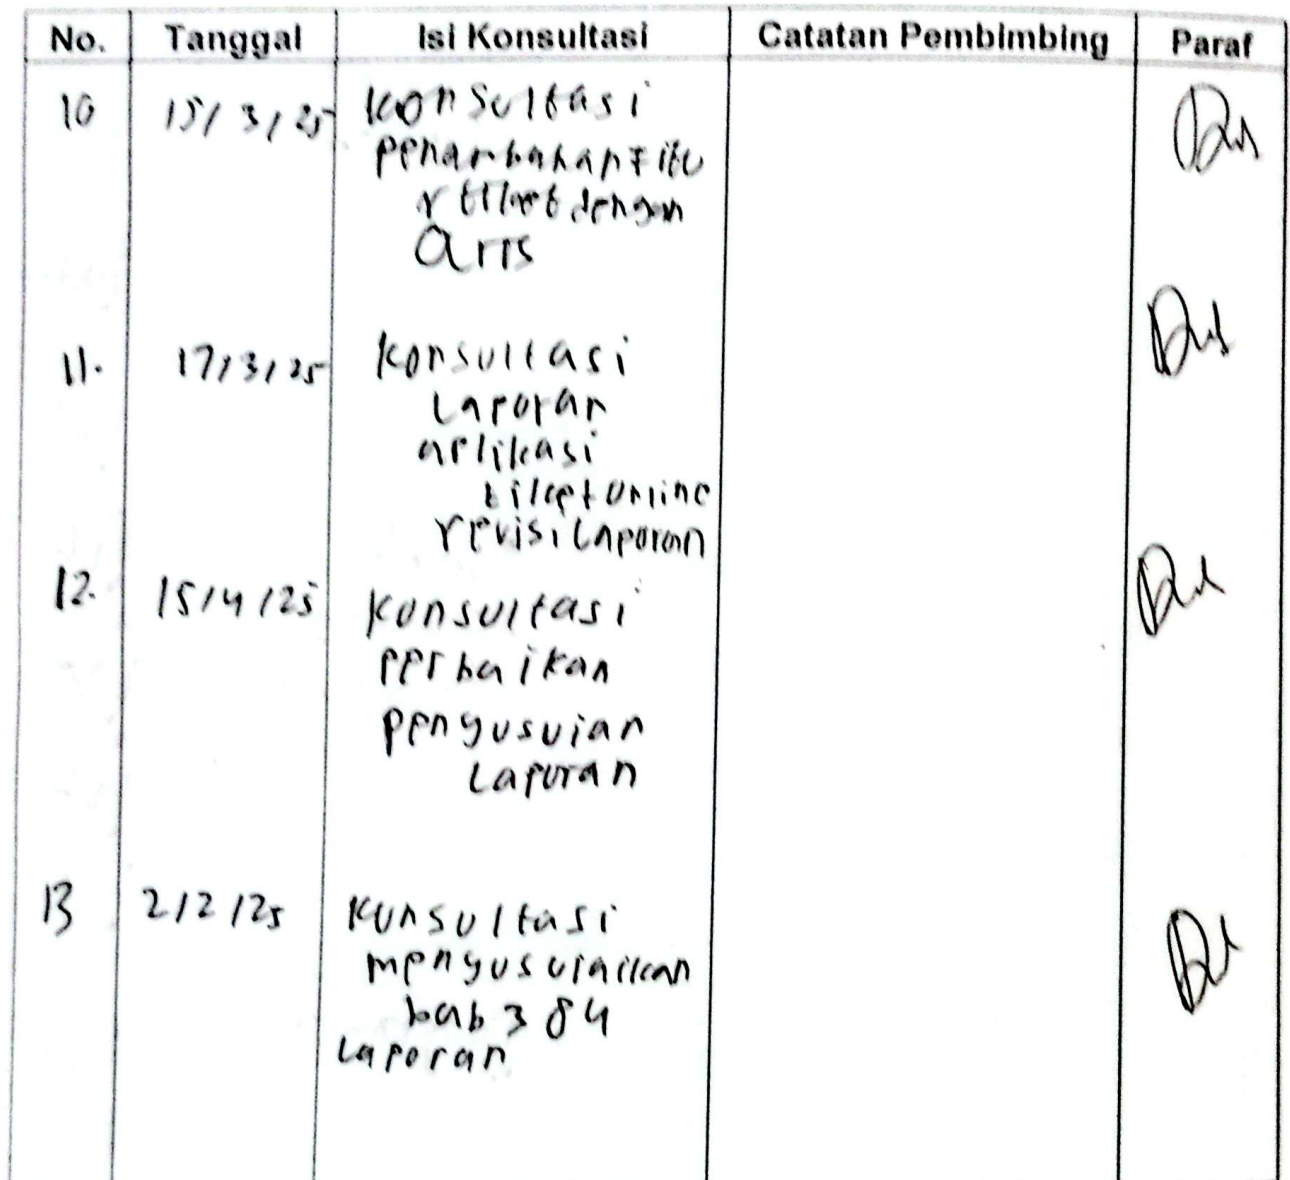 No. Tanggal Isi Konsultasi Catatan Pembimbing Paraf
10 15/3/25 Konsultasi
penambahan Fitu
r tiket dengan
Qris
11. 17/3/25 Konsultasi
Laporan
aplikasi
tiket online
revisi Laporan
12. 15/4/25 Konsultasi
perbaikan
pengusuian
Laporan
13 2/2/25 Konsultasi
mengusuaikan
bab 3 & 4
Laporan